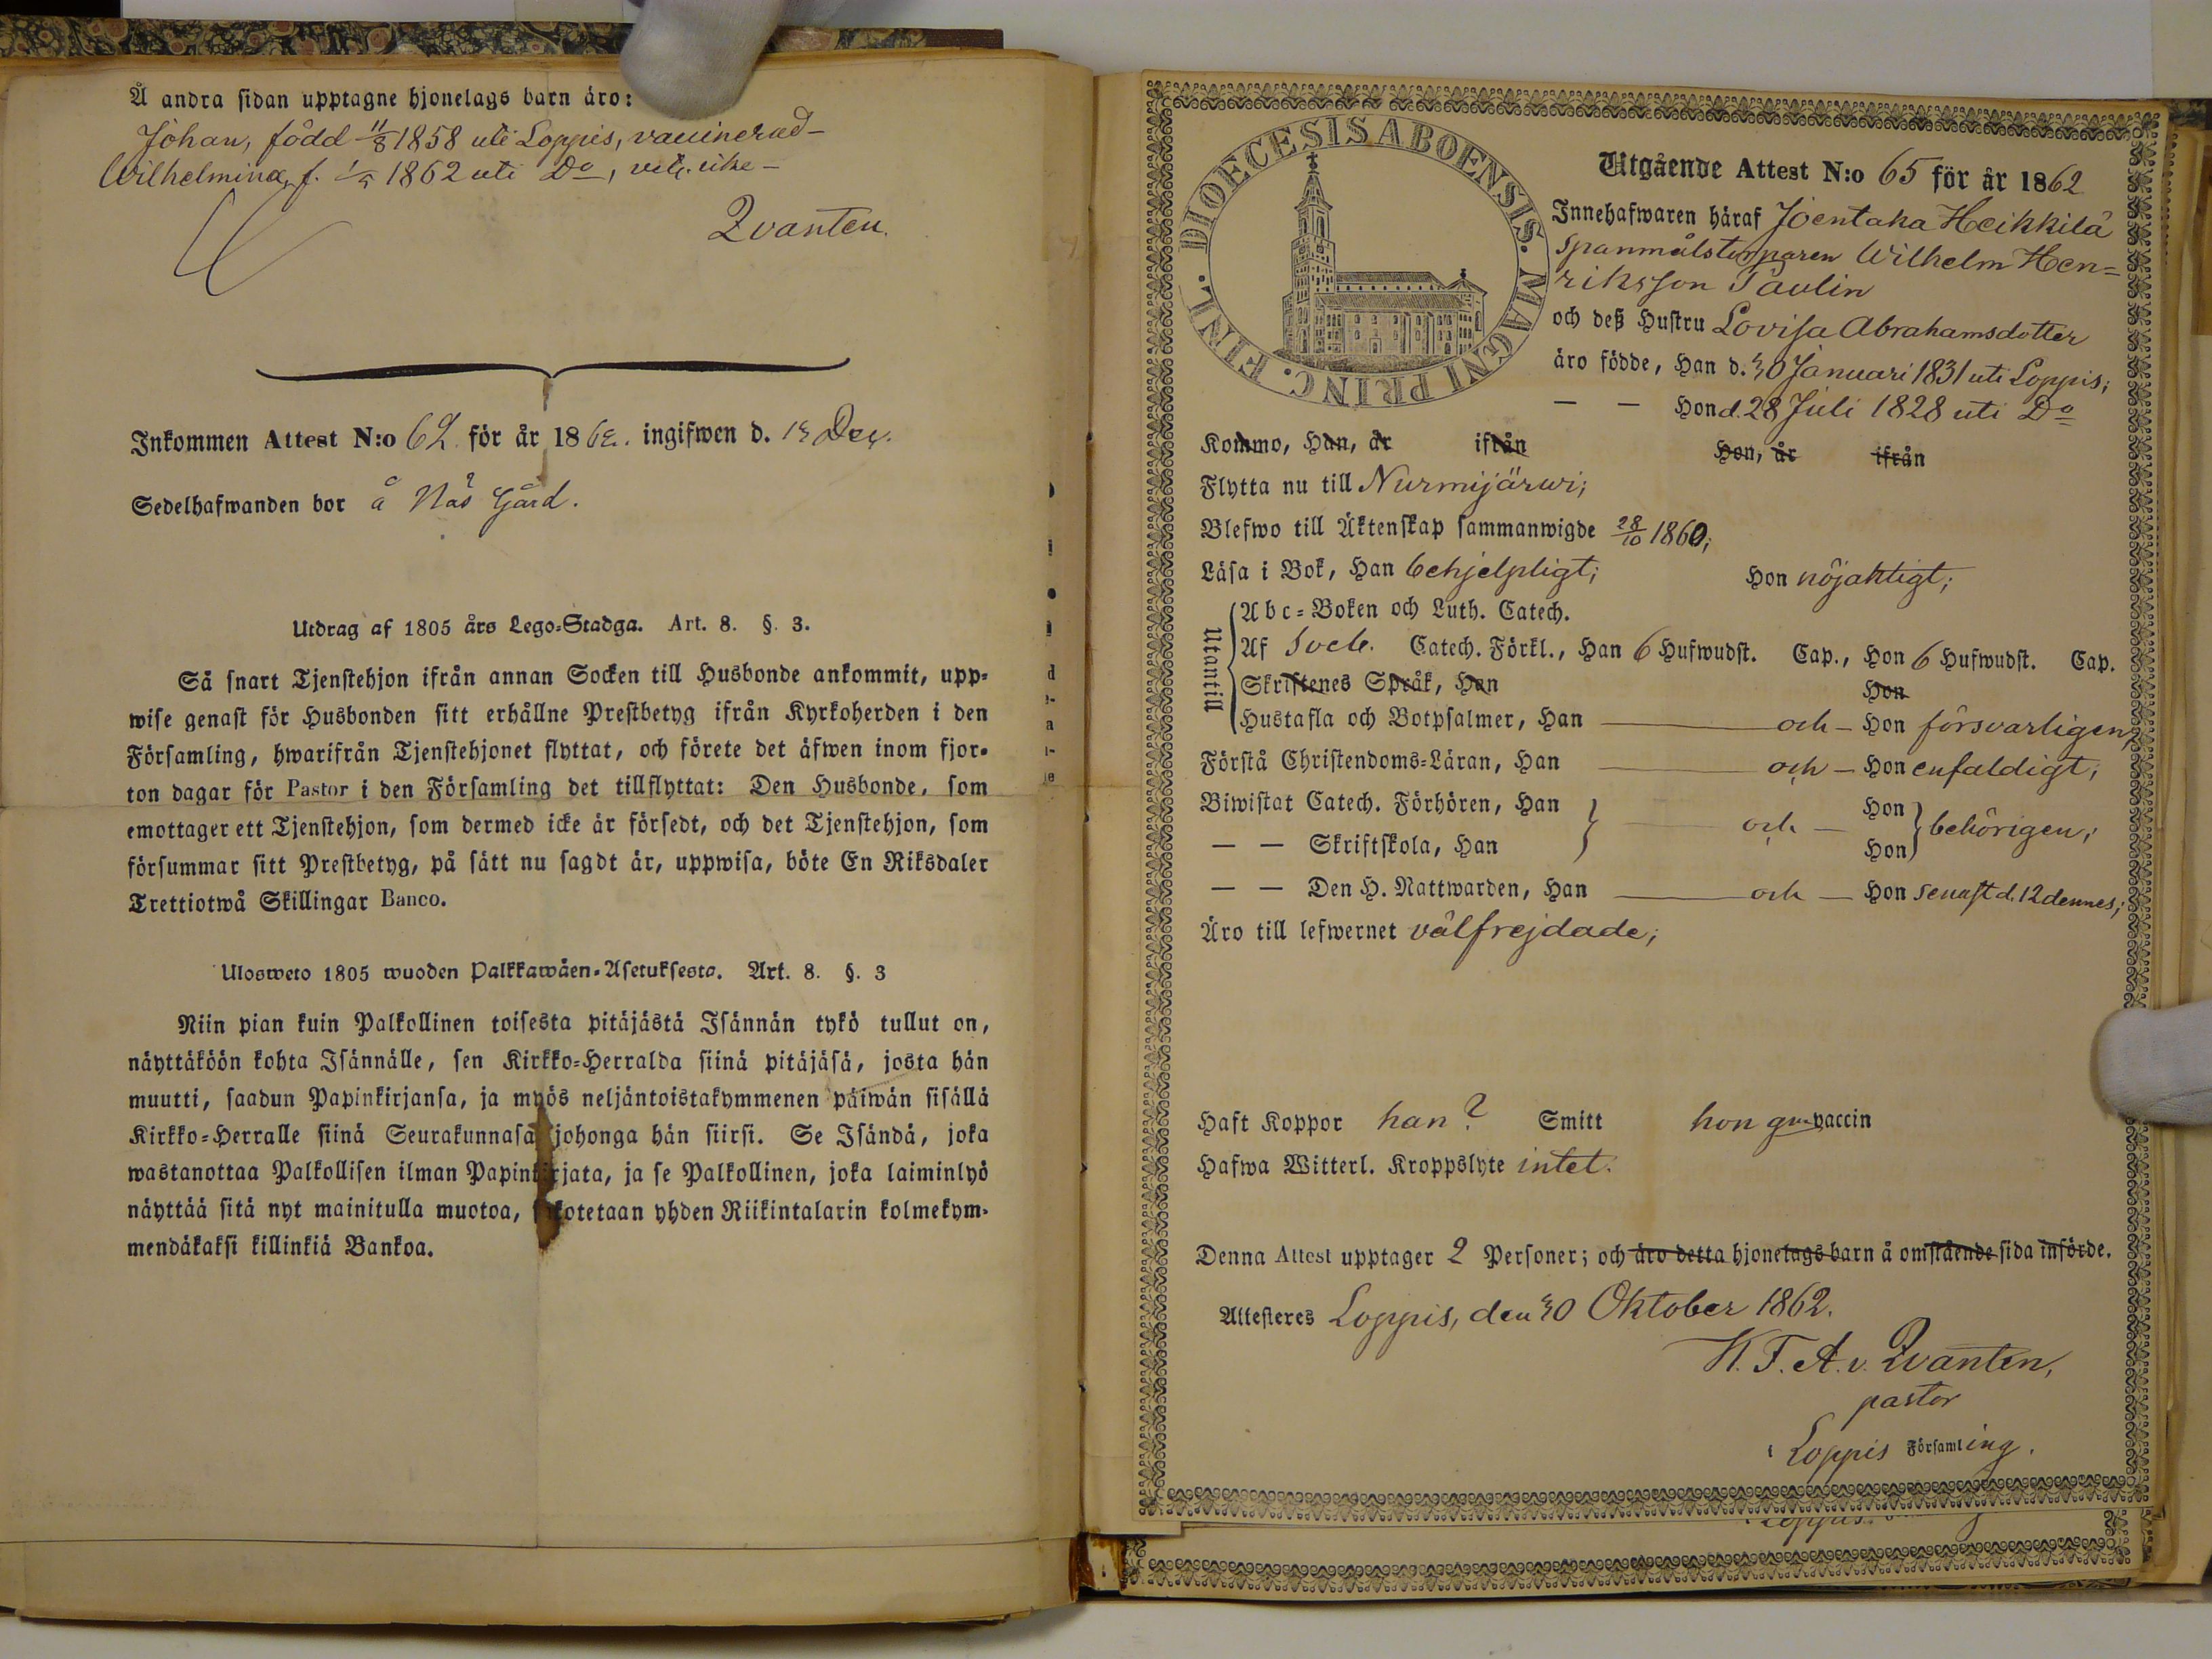 Å andra sidan upptagne hjonelags barn äro:
Johan, född 11/8 1858 uti Loppis, vaccinerad
Wilhelmina, f. 1/5 1862 uti Do,
Qvanten.
Inkommen Attest N:o 62 för år 1862. ingifwen d. Dec.
Sedelhafwanden bor å Näs Gård.
Utdrag af 1805 års Lego-Stadga. Art. 8. §. 3.
Så snart Tjenstehjon ifrån annan Socken till Husbonde ankommit, upp-
wise genast för Husbonden sitt erhållne Prestbetyg ifrån Kyrkoherden i den
Församling, hwarifrån Tjenstehjonet flyttat, och förete det äfwen inom fjor-
ton dagar för Pastor i den Församling det tillflyttat: Den Husbonde, som
emottager ett Tjenstehjon, som dermed icke är försedt, och det Tjenstehjon, som
försummar sitt Prestbetyg, på sätt nu sagdt är, uppwisa, böte En Riksdaler
Trettiotwå Skillingar Banco.
Ulosweto 1805 wuoden Palkkawäen-Asetuksesta. Art. 8. §. 3
Niin pian kuin Palkollinen toisesta pitäjästä Isännän tykö tullut on,
näyttäköön kohta Isännälle, sen Kirkko-Herralda siinä pitäjäsä, josta hän
muutti, saadun Papinkirjansa, ja myös neljäntoistakymmenen päiwän sisällä
Kirkko-Herralle siinä Seurakunnasa johonga hän siirsi. Se Isändä, joka
wastanottaa Palkollisen ilman Papinkirjata, ja se Palkollinen, joka laiminlyö
näyttää sitä nyt mainitulla muotoa, sakotetaan yhden Riikintalarin kolmekym-
mendäkaksi killinkiä Bankoa.
DIOECESIS ABOENSIS. MAGNI PRINC. FINL.
Utgående Attest N:o 65 för år 1862
Innehafwaren häraf Joentaka Heikkilä
spanmålstorparen Wilhelm Hen-
riksson Paulin
och deß Hustru Lovisa Abrahamsdotter
äro födde, Han d. 30 Januari 1831 uti Loppis;
— — Hon d. 28 Juli 1828 uti Do
Kommo, Han, år ifrån Hon, år ifrån
Flytta nu till Nurmijärwi;
Blefwo till Äktenskap sammanwigde 28/10 1860;
Läsa i Bok, Han behjelpligt; Hon nöjaktigt;
Utantill
Abc-Boken och Luth. Catech.
Af Catech. Förkl., Han 6 Hufwudst. Cap., Hon 6 Hufwudst. Cap.
Skriftenes Språk, Han Hon
Hustafla och Botpsalmer, Han — och — Hon försvarligen,
Förstå Christendoms-Läran, Han — och — Hon enfaldigt;
Biwistat Catech. Förhören, Han — och — Hon behörigen;
— — Skriftskola, Han Hon
— — Den H. Nattwarden, Han — och — Hon senast d. 12 dennes;
Äro till lefwernet välfrejdade;
Haft Koppor han? Smitt hon vaccin
Hafwa Witterl. Kroppslyte intet.
Denna Attest upptager 2 Personer; och äro detta hjonelags barn å omstående sida införde.
Attesteres Loppis, den 30 Oktober 1862.
K. F. A. v. Qvanten,
pastor
i Loppis Församling.